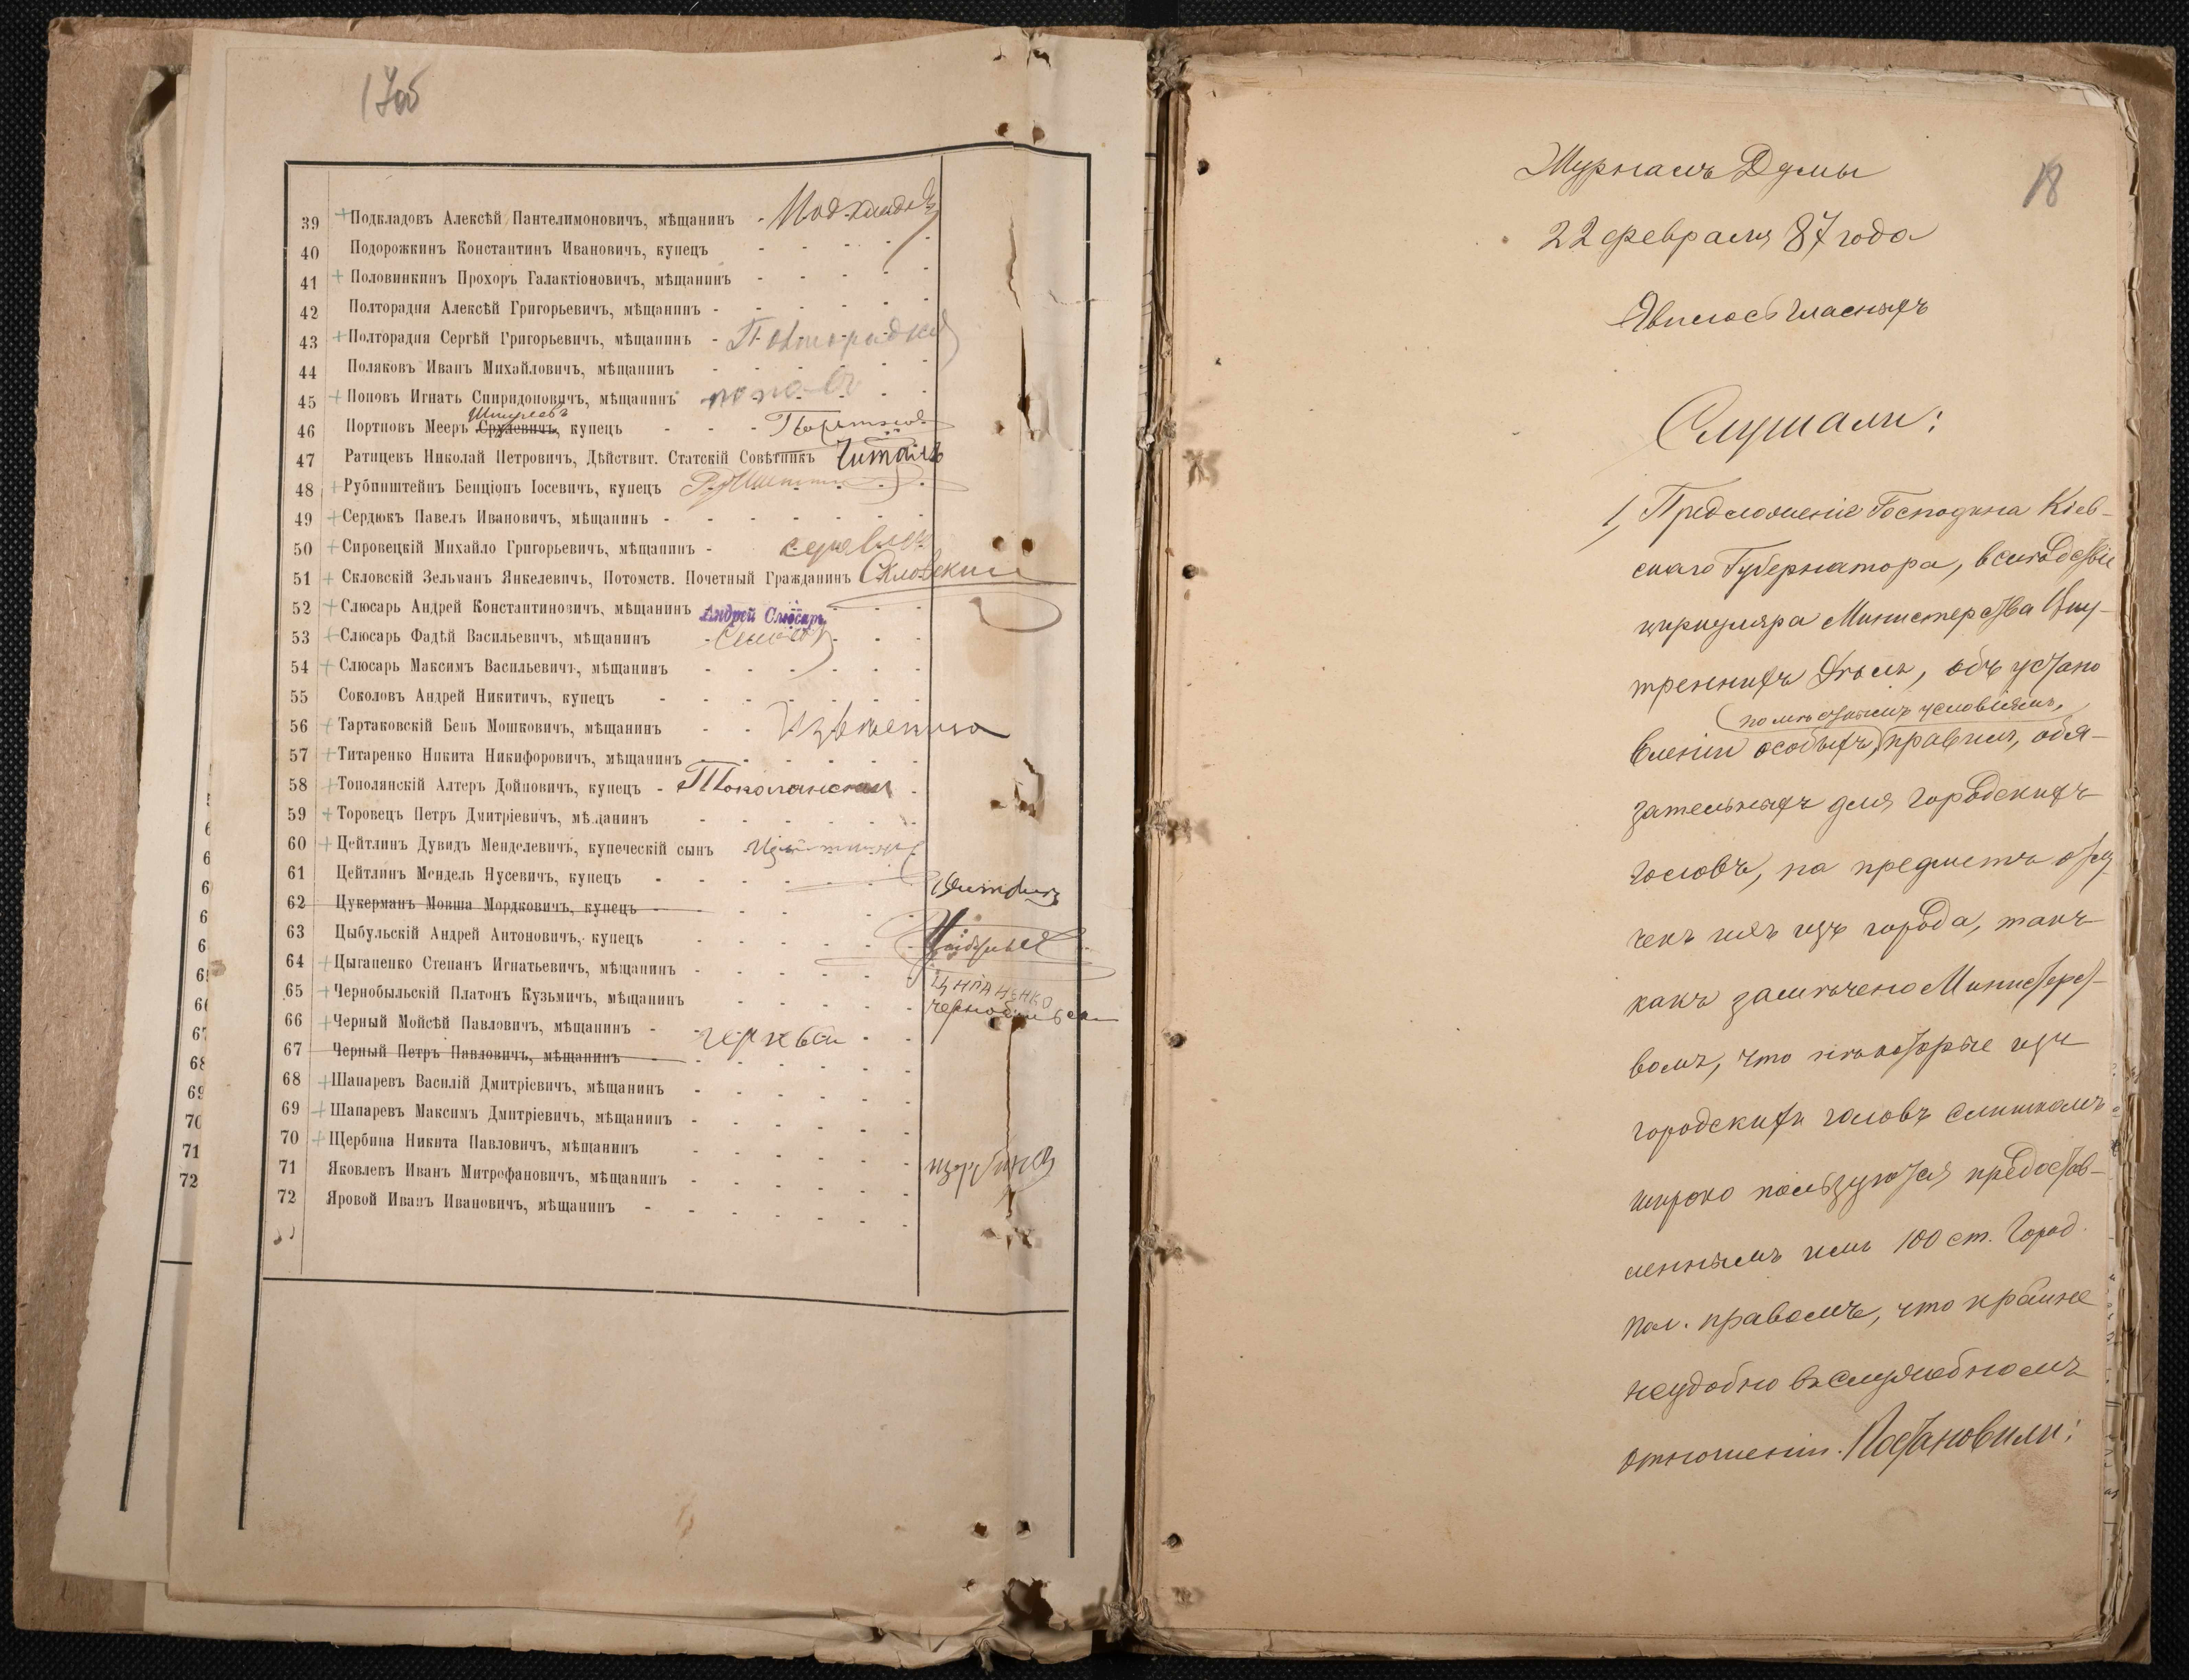 17об
39 + Подкладовъ Алексѣй Пантелимоновичъ, мѣщанинъ - Подкладовъ
40 Подорожкинъ Константинъ Ивановичъ, купецъ
41 + Половинкинъ Прохоръ Галактіоновичъ, мѣщанинъ
42 Полторадня Алексѣй Григорьевичъ, мѣщанинъ
43 + Полторадня Сергѣй Григорьевичъ, мѣщанинъ - Полторадня
44 Поляковъ Иванъ Михайловичъ, мѣщанинъ
45 + Поповъ Игнатъ Спиридоновичъ, мѣщанинъ поповъ
Шмулевъ
46 Портновъ Мееръ Срулевичъ, купецъ Портнов
47 Ратицевъ Николай Петровичъ, Дѣйствит. Статскій Совѣтникъ Читалъ
48 + Рубинштейнъ Бенціонъ Іосевичъ, купецъ
49 + Сердюкъ Павелъ Ивановичъ, мѣщанинъ
50 + Сировецкій Михайло Григорьевичъ, мѣщанинъ
51 + Скловскій Зельманъ Янкелевичъ, Потомств. Почетный Гражданинъ Скловский
52 + Слюсарь Андрей Константиновичъ, мѣщанинъ Андрей Слюсарь
53 + Слюсарь Фадѣй Васильевичъ, мѣщанинъ
54 + Слюсарь Максимъ Васильевичъ, мѣщанинъ
55 Соколовъ Андрей Никитичъ, купецъ
56 + Тартаковскій Бень Мошковичъ, мѣщанинъ
57 + Титаренко Никита Никифоровичъ, мѣщанинъ
58 + Тополянскій Алтеръ Дойновичъ, купецъ - Тополянский
59 + Торовецъ Петръ Дмитріевичъ, мѣщанинъ
60 + Цейтлинъ Дувидъ Менделевичъ, купеческій сынъ
61 Цейтлинъ Мендель Нусевичъ, купецъ
62 Цукерманъ Мовша Мордковичъ, купецъ
63 Цыбульскій Андрей Антоновичъ, купецъ
64 + Цыганенко Степанъ Игнатьевичъ, мѣщанинъ
65 + Чернобыльскій Платонъ Кузьмичъ, мѣщанинъ
66 + Черный Мойсѣй Павловичъ, мѣщанинъ
67 Черный Петръ Павловичъ, мѣщанинъ
68 + Шапаревъ Василій Дмитріевичъ, мѣщанинъ
69 + Шапаревъ Максимъ Дмитріевичъ, мѣщанинъ
70 + Щербина Никита Павловичъ, мѣщанинъ
71 Яковлевъ Иванъ Митрофановичъ, мѣщанинъ
72 Яровой Иванъ Ивановичъ, мѣщанинъ
67
68
69
70
71
72
18
Журналъ Думы
22 февраля 87 года
Явилось гласныхъ
Слушали:
1, Предложеніе Господина Кіев-
скаго Губернатора, вслѣдствіе
циркуляра Министерства Вну-
треннихъ Дѣлъ, объ устано
(по мѣстнымъ условіямъ,
вленіи особыхъ, правилъ, обя-
зательныхъ для городскихъ
головъ, на предметъ отлу
чекъ ихъ изъ города, такъ
какъ замѣчено Министерст-
вомъ, что нѣкоторые изъ
городскихъ головъ слишкомъ
широко пользуются предостав-
леннымъ имъ 100 ст. Город.
пол. правомъ, что крайне
неудобно въ служебномъ
отношеніи. Постановили: